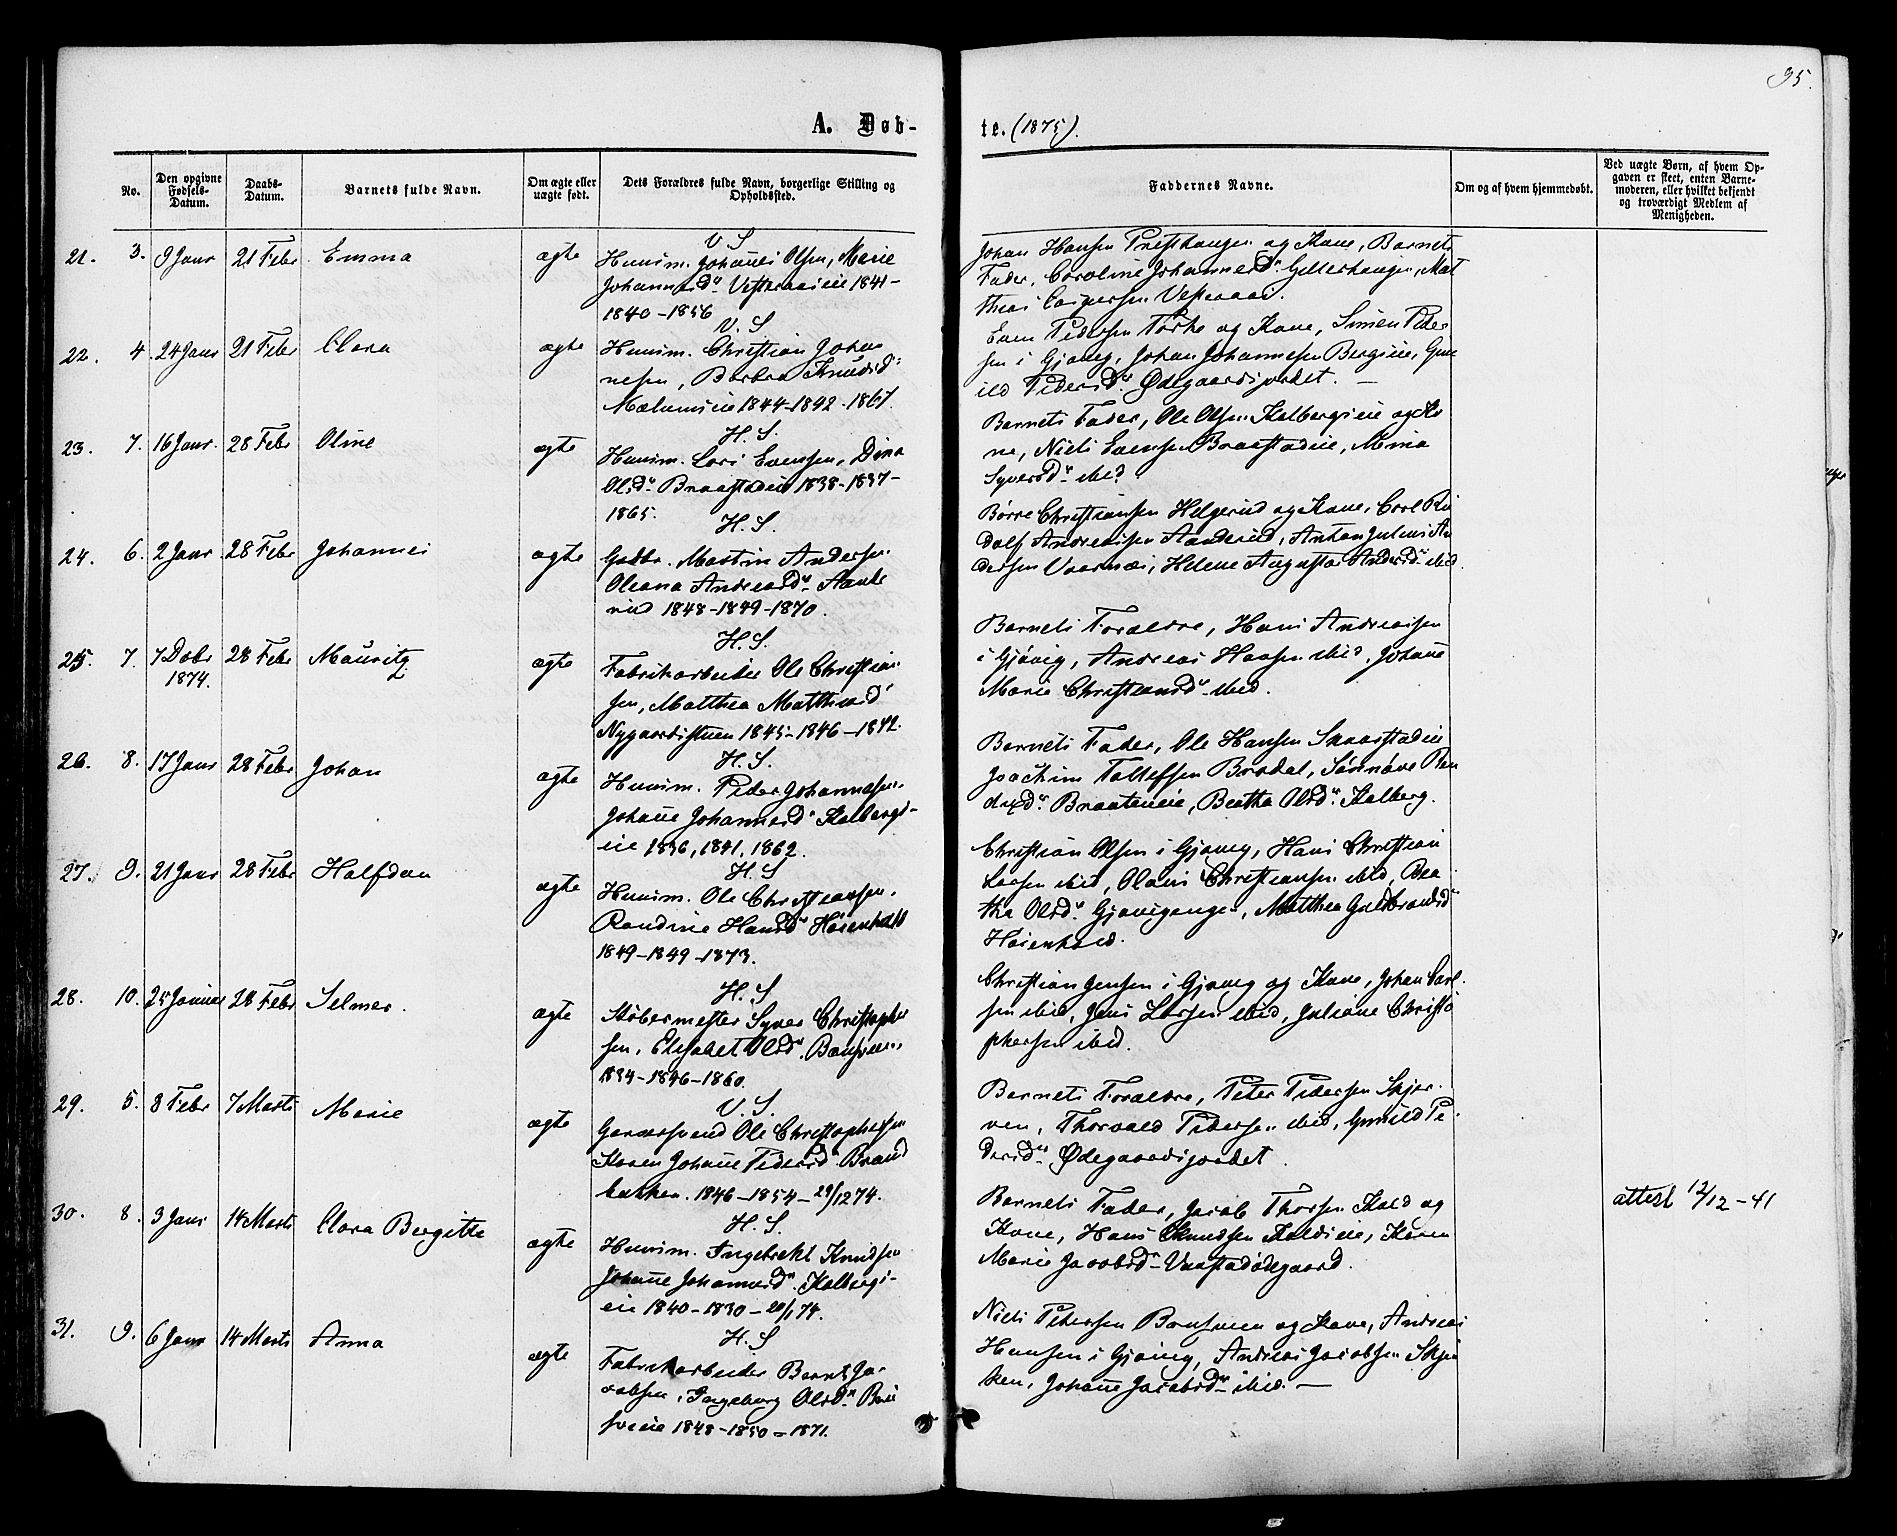 95.
A. Døb-
te. (1875).
No.
Den opgivne Fødsels-Datum.
Daabs-Datum.
Barnets fulde Navn.
Om ægte eller uægte født.
Dets Forældres fulde Navn, borgerlige Stilling og Opholdssted.
Faddernes Navne.
Om og af hvem hjemmedøbt.
Ved uægte Børn, af hvem Op-
gaven er skeet, enten Barne-
moderen, eller hvilket bekjendt
og troværdigt Medlem af
Menigheden.
21. 3. 9 Janr 21 Febr Emma ægte
V. S
Huusm. Johannes Olsen, Marie
Johannesd. Vesteraaseie 1841-
1840-1856
Johan Hansen Præsthaugen og Kone, Barnets
Fader, Caroline Johannesd. Gilterhaugen, Mat
thias Caspersen Vesteraas.
22. 4. 24 Janr 21 Febr Clara ægte
V. S
Huusm. Christian Johan
nesen, Barbra Knudsd.
Mælumseie 1844-1842-1867.
Even Pedersen Torke og Kone, Simen Peder
sen i Gjøvig, Johan Johannesen Bergseie, Gun
ild Pedersd. Ødegaardsjordet. —
23. 7. 16 Janr. 28 Febr Oline ægte
H. S.
Huusm. Lars Evensen, Dina
Olsd. Braastadeie 1838-1837-
1865.
Barnets Fader, Ole Olsen Kalbergseie og Ko
ne, Niels Evensen Braastadeie, Mina
Syversd. ibid
24. 6. 2 Janr 28 Febr Johannes ægte
H. S.
Gaardbr. Martin Andersen
Oleana Andreasd. Aande
rud 1848-1849-1870.
Børre Christiansen Helgerud og Kone, Carl Ru
dolf Andreassen Aanderud, Anton Julius An
dersen Vaarnæs, Helene Augusta Andersd. ibid.
25. 7. 7 Debr 1874. 28 Febr Mauritz ægte
H. S.
Fabrikarbeider Ole Christian
sen, Matthea Matthiasd.
Nygaardsstuen 1845-1846-1872.
Barnets Forældre, Hans Andreassen
i Gjøvig, Andreas Hansen ibid, Johanne
Marie Christiansd. ibid.
26. 8. 17 Janr 28 Febr Johan ægte
H. S.
Huusm. Peder Johannesen.
Johanne Johannesd. Kalbergs-
eie 1836, 1841, 1862.
Barnets Fader, Ole Hansen Skaarstadeie
Joachim Tollefsen Bradal, Sønnøve
Braateneie, Beatha Olsd. Kalberg.
27. 9. 21 Janr 28 Febr Halfdan ægte
H. S
Huusm. Ole Christiansen.
Randine Hansd. Høienhald
1849-1849-1873.
Christian Olsen i Gjøvig, Hans Christian
Larsen ibid, Olaus Christiansen ibid, Bea
tha Olsd. Gjøvigengen, Matthea Guldbrandsd.
Høienhald.
28. 10. 25 Januar 28 Febr Selmer. ægte
H. S
Støbermester Syver Christopher
sen, Elisabet Olsd. Bansveen,
1834-1846-1860.
Christian Jensen i Gjøvig og Kone, Johan Carl
sen ibid, Jens Larsen ibid, Juliane Christo
phersen ibid.
29. 5. 8 Febr 7 Marts Marie ægte
V. S.
Garversvend Ole Christophersen
Karen Johanne Pedersd. Brand
bakken. 1846-1854-29/12 74.
Barnets Forældre, Peter Pedersen Skjer
ven, Thorvald Pedersen ibid, Gunild Pe
dersd. Ødegaardsjordet.
30. 8. 3 Janr 14 Marts Clara Bergitte ægte
H. S.
Huusm. Ingebrekt Knudsen
Johanne Johannesd. Kalbergs-
eie 1840-1830-20/1 74.
Barnets Fader, Jacob Thorsen Kald og
Kone, Hans Knudsen Kaldseie, Karen
Marie Jacobsd. ødegaard.
attest 12/12-41
31. 9. 6 Janr 14 Marts Anna ægte
H. S
Fabrikarbeider Bernt Ja-
cobsen, Ingeborg Olsd. Bon
sveie 1848-1850-1871.
Niels Petersen Bonsveen og Kone, Andreas
Hansen i Gjøvig, Andreas Jacobsen Skjen
ken, Johanne Jacobsd. ibid. —